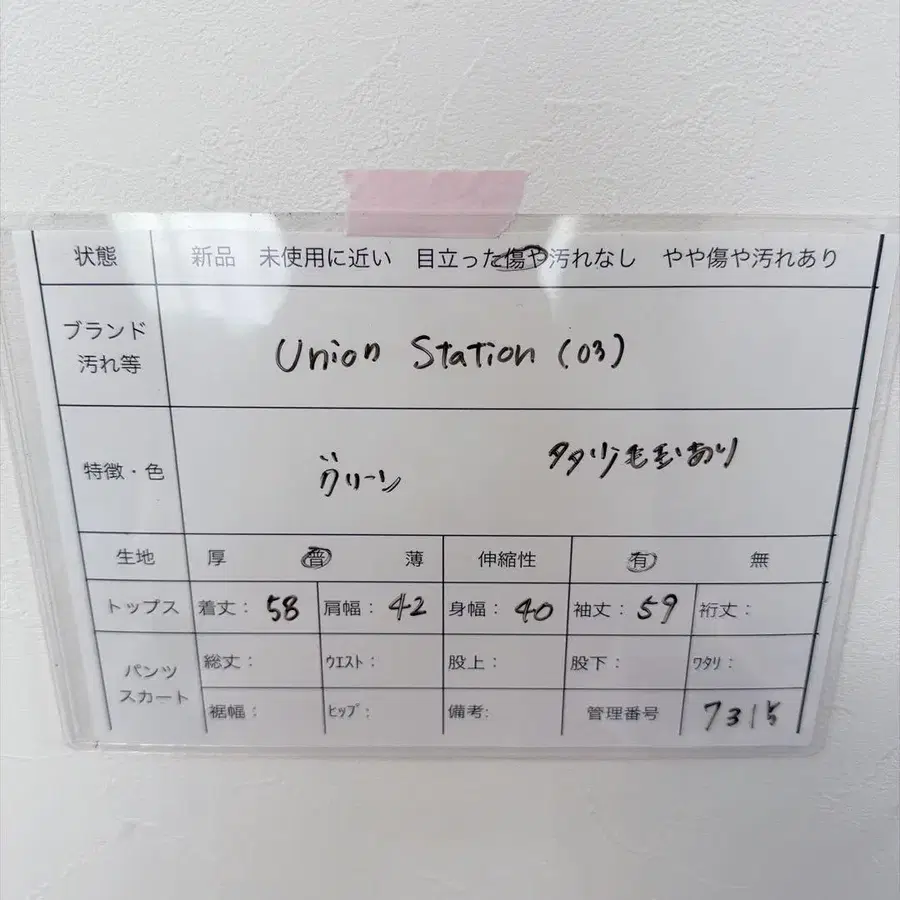 状態 新品 未使用に近い 目立った傷や汚れなし やや傷や汚れあり
ブランド
汚れ等
Union Station (03)
特徴・色
グリーン
あり
生地 厚 普 薄 伸縮性 有 無
トップス 着丈: 58 肩幅: 42 身幅: 40 袖丈: 59 裄丈:
パンツ
スカート
総丈: ウエスト: 股上: 股下: ワタリ:
裾幅: ヒップ: 備考: 管理番号 7315